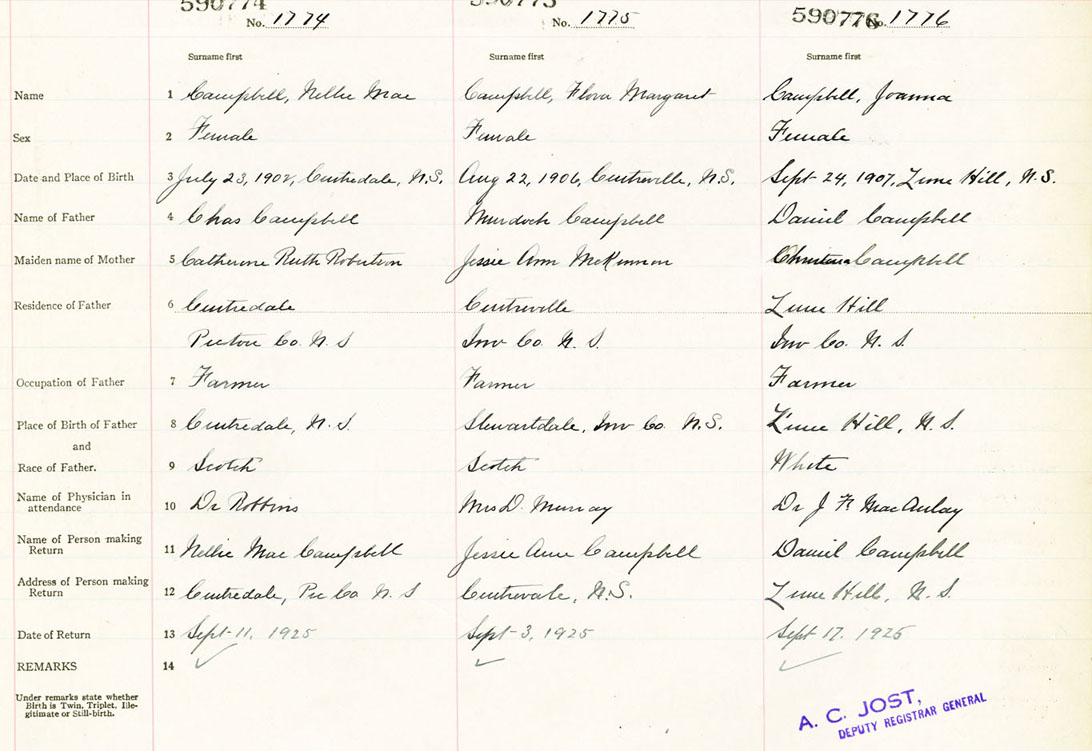 590774 590775 590776
No. 1774 No. 1775 No. 1776
Surname first Surname first Surname first
Name 1 Campbell, Nellie Mae Campbell, Flora Margaret Campbell, Joanna
Sex 2 Female Female Female
Date and Place of Birth 3 July 23, 1902, Centredale, N.S. Aug 22, 1906, Centreville, N.S. Sept 24, 1907, Lime Hill, N.S.
Name of Father 4 Chas Campbell Murdock Campbell Daniel Campbell
Maiden name of Mother 5 Catherine Ruth Robertson Jessie Ann McKinnon Christina Campbell
Residence of Father 6 Centredale Centreville Lime Hill
Pictou Co. N. S Inv Co. N. S. Inv Co. N. S.
Occupation of Father 7 Farmer Farmer Farmer
Place of Birth of Father 8 Centredale, N. S Stewartdale, Inv Co. N.S. Lime Hill, N. S.
and
Race of Father. 9 Scotch Scotch White
Name of Physician in
attendance 10 Dr Robbins Mrs D. Murray Dr J F MacAulay
Name of Person making
Return 11 Nellie Mae Campbell Jessie Ann Campbell Daniel Campbell
Address of Person making
Return 12 Centredale, Pic Co N. S N.S. Lime Hill, N. S.
Date of Return 13 Sept 11, 1925 Sept 3, 1925 Sept 17. 1925
REMARKS 14
Under remarks state whether
Birth is Twin, Triplet, Ille-
gitimate or Still-birth.
A. C. JOST,
DEPUTY REGISTRAR GENERAL